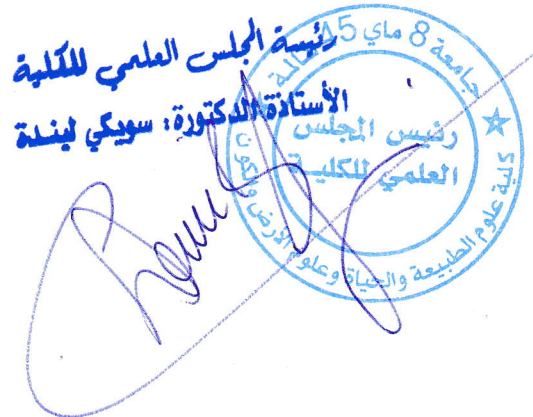 رئيسة المجلس العلمي للكلية
الأستاذة الدكتورة: سويكي ليندة
جامعة 8 ماي 45 قالمة
رئيس المجلس
العلمي للكلية
كلية علوم الطبيعة والحياة وعلوم الأرض والكون